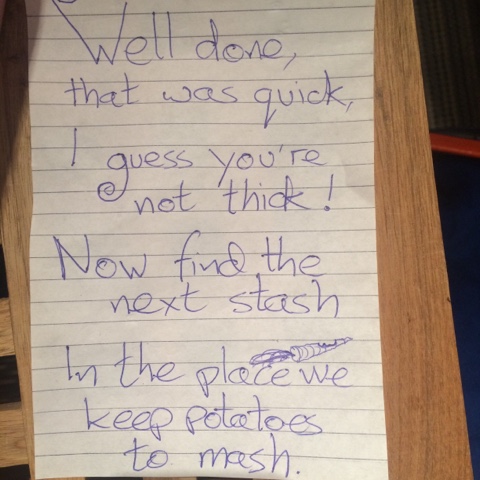 Well done,
that was quick,
I guess you're
not thick!
Now find the
next stash
In the place we
keep potatoes
to mash.